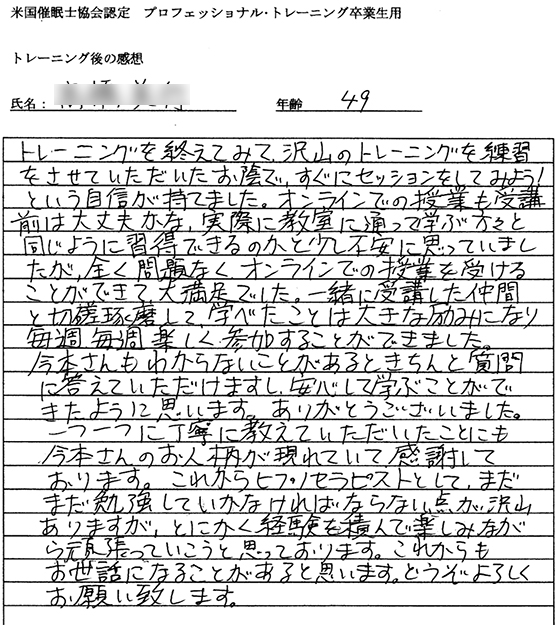 米国催眠士協会認定　プロフェッショナル・トレーニング卒業生用
トレーニング後の感想
氏名：
年齢　49
トレーニングを終えてみて、沢山のトレーニングを練習
をさせていただいたお陰で、すぐにセッションをしてみよう！
という自信が持てました。オンラインでの授業も受講
前は大丈夫かな、実際に教室に通って学ぶ方々と
同じように習得できるのかと少し不安に思っていまし
たが、全く問題なく、オンラインでの授業を受ける
ことができて大満足でした。一緒に受講した仲間
と切磋琢磨して、学べたことは大きな励みになり
毎週毎週楽しく参加することができました。
今本さんもわからないことがあるときちんと質問
に答えていただけますし、安心して学ぶことがで
きたように思います。ありがとうございました。
一つ一つに丁寧に教えていただいたことにも
今本さんのお人柄が現れていて感謝して
おります。これからヒプノセラピストとして、まだ
まだ勉強していかなければならない点が沢山
ありますが、とにかく経験を積んで楽しみなが
ら頑張っていこうと思っております。これからも
お世話になることがあると思います。どうぞよろしく
お願い致します。